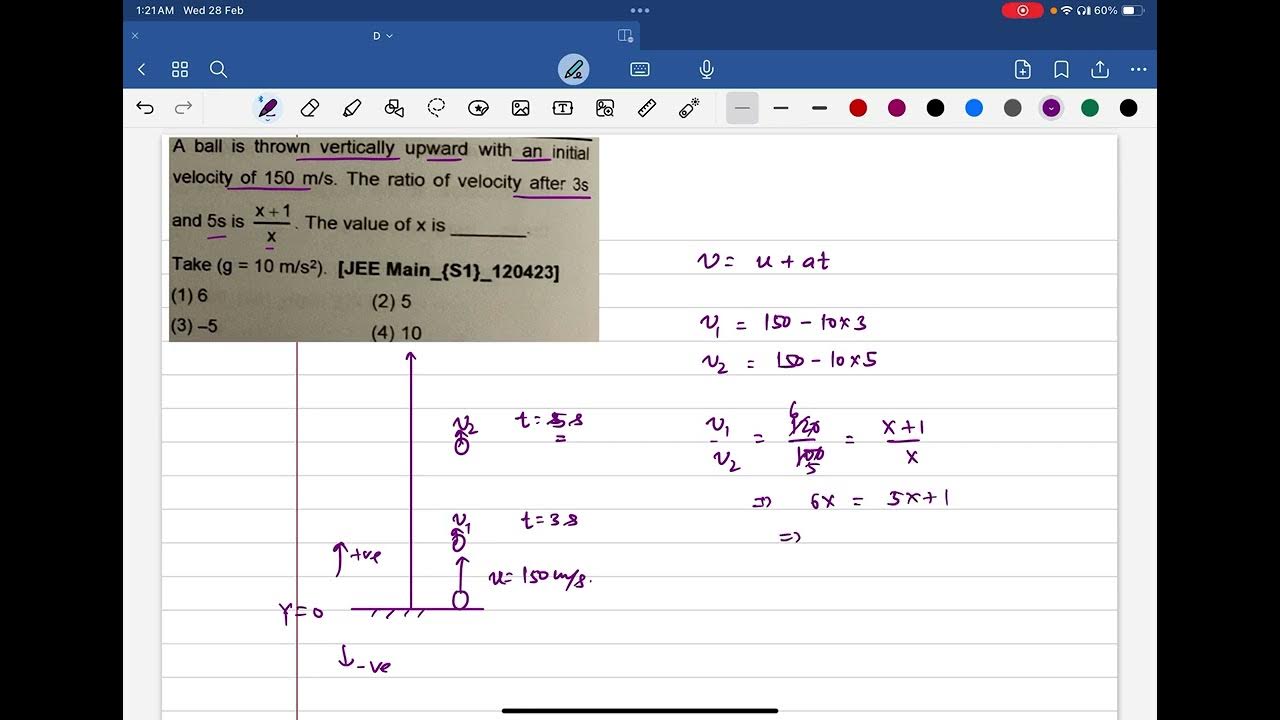 1:21 AM Wed 28 Feb
60%
D
A ball is thrown vertically upward with an initial
velocity of 150 m/s. The ratio of velocity after 3s
and 5s is (x + 1)/x. The value of x is ________.
Take (g = 10 m/s²). [JEE Main_{S1}_120423]
(1) 6
(2) 5
(3) –5
(4) 10
v = u + at
v₁ = 150 - 10×3
v₂ = 150 - 10×5
v₁/v₂ = 120/100 = (x+1)/x
6
5
⇒ 6x = 5x+1
⇒
v₂ t = 5 s
v₁ t = 3 s
↑ +ve
u = 150 m/s.
Y = 0
↓ -ve